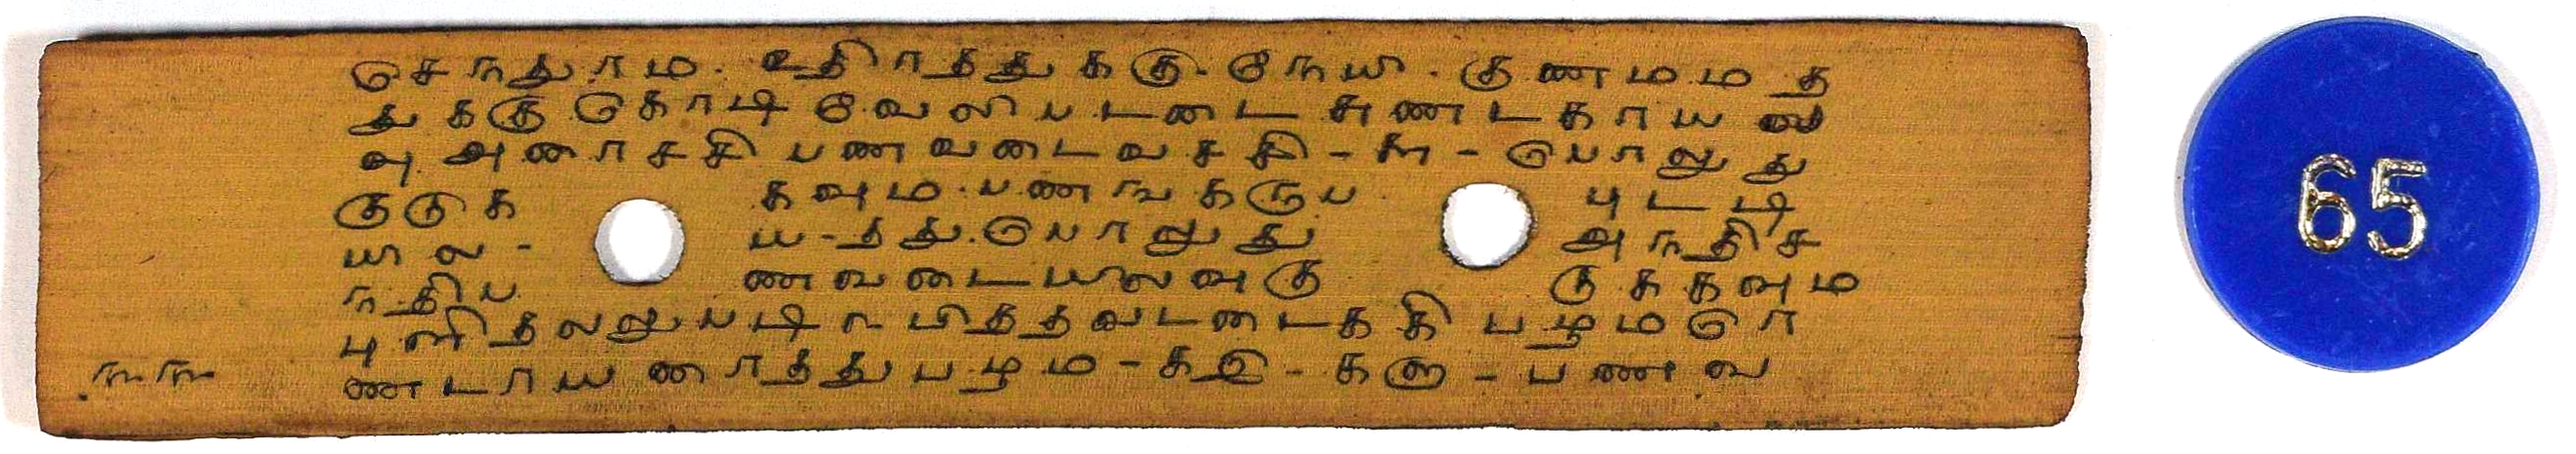 செநதுரம. உதிரததுககு. நேயி. குணமமத
துககு கொடி வேலிபடடை சுணடகாய வ
வு அரைசசி பணவடைவசசி - ௩ - பொறுது
குடுக கவும. பணஙகருப புடடி
யில - ய - தது. பொறுது அநதிச
நதிப ணவடையிலவுகு குககவும
புளிதலறுபடி ௩ பிததவடடைககி பழமரெ
ணடாய ரைதது பழம - ௧௨ - ௧ளு - பணவ
௩௩
65